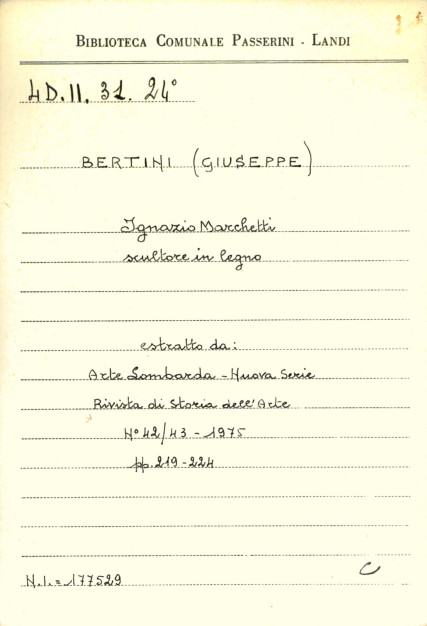 BIBLIOTECA COMUNALE PASSERINI - LANDI
4D.II.31.24°
BERTINI (GIUSEPPE)
Ignazio Marchetti
scultore in legno
estratto da:
Arte Lombarda - Nuova Serie
Rivista di Storia dell'Arte
N° 42/43 - 1975
pp. 219-224
C
N.I.= 177529